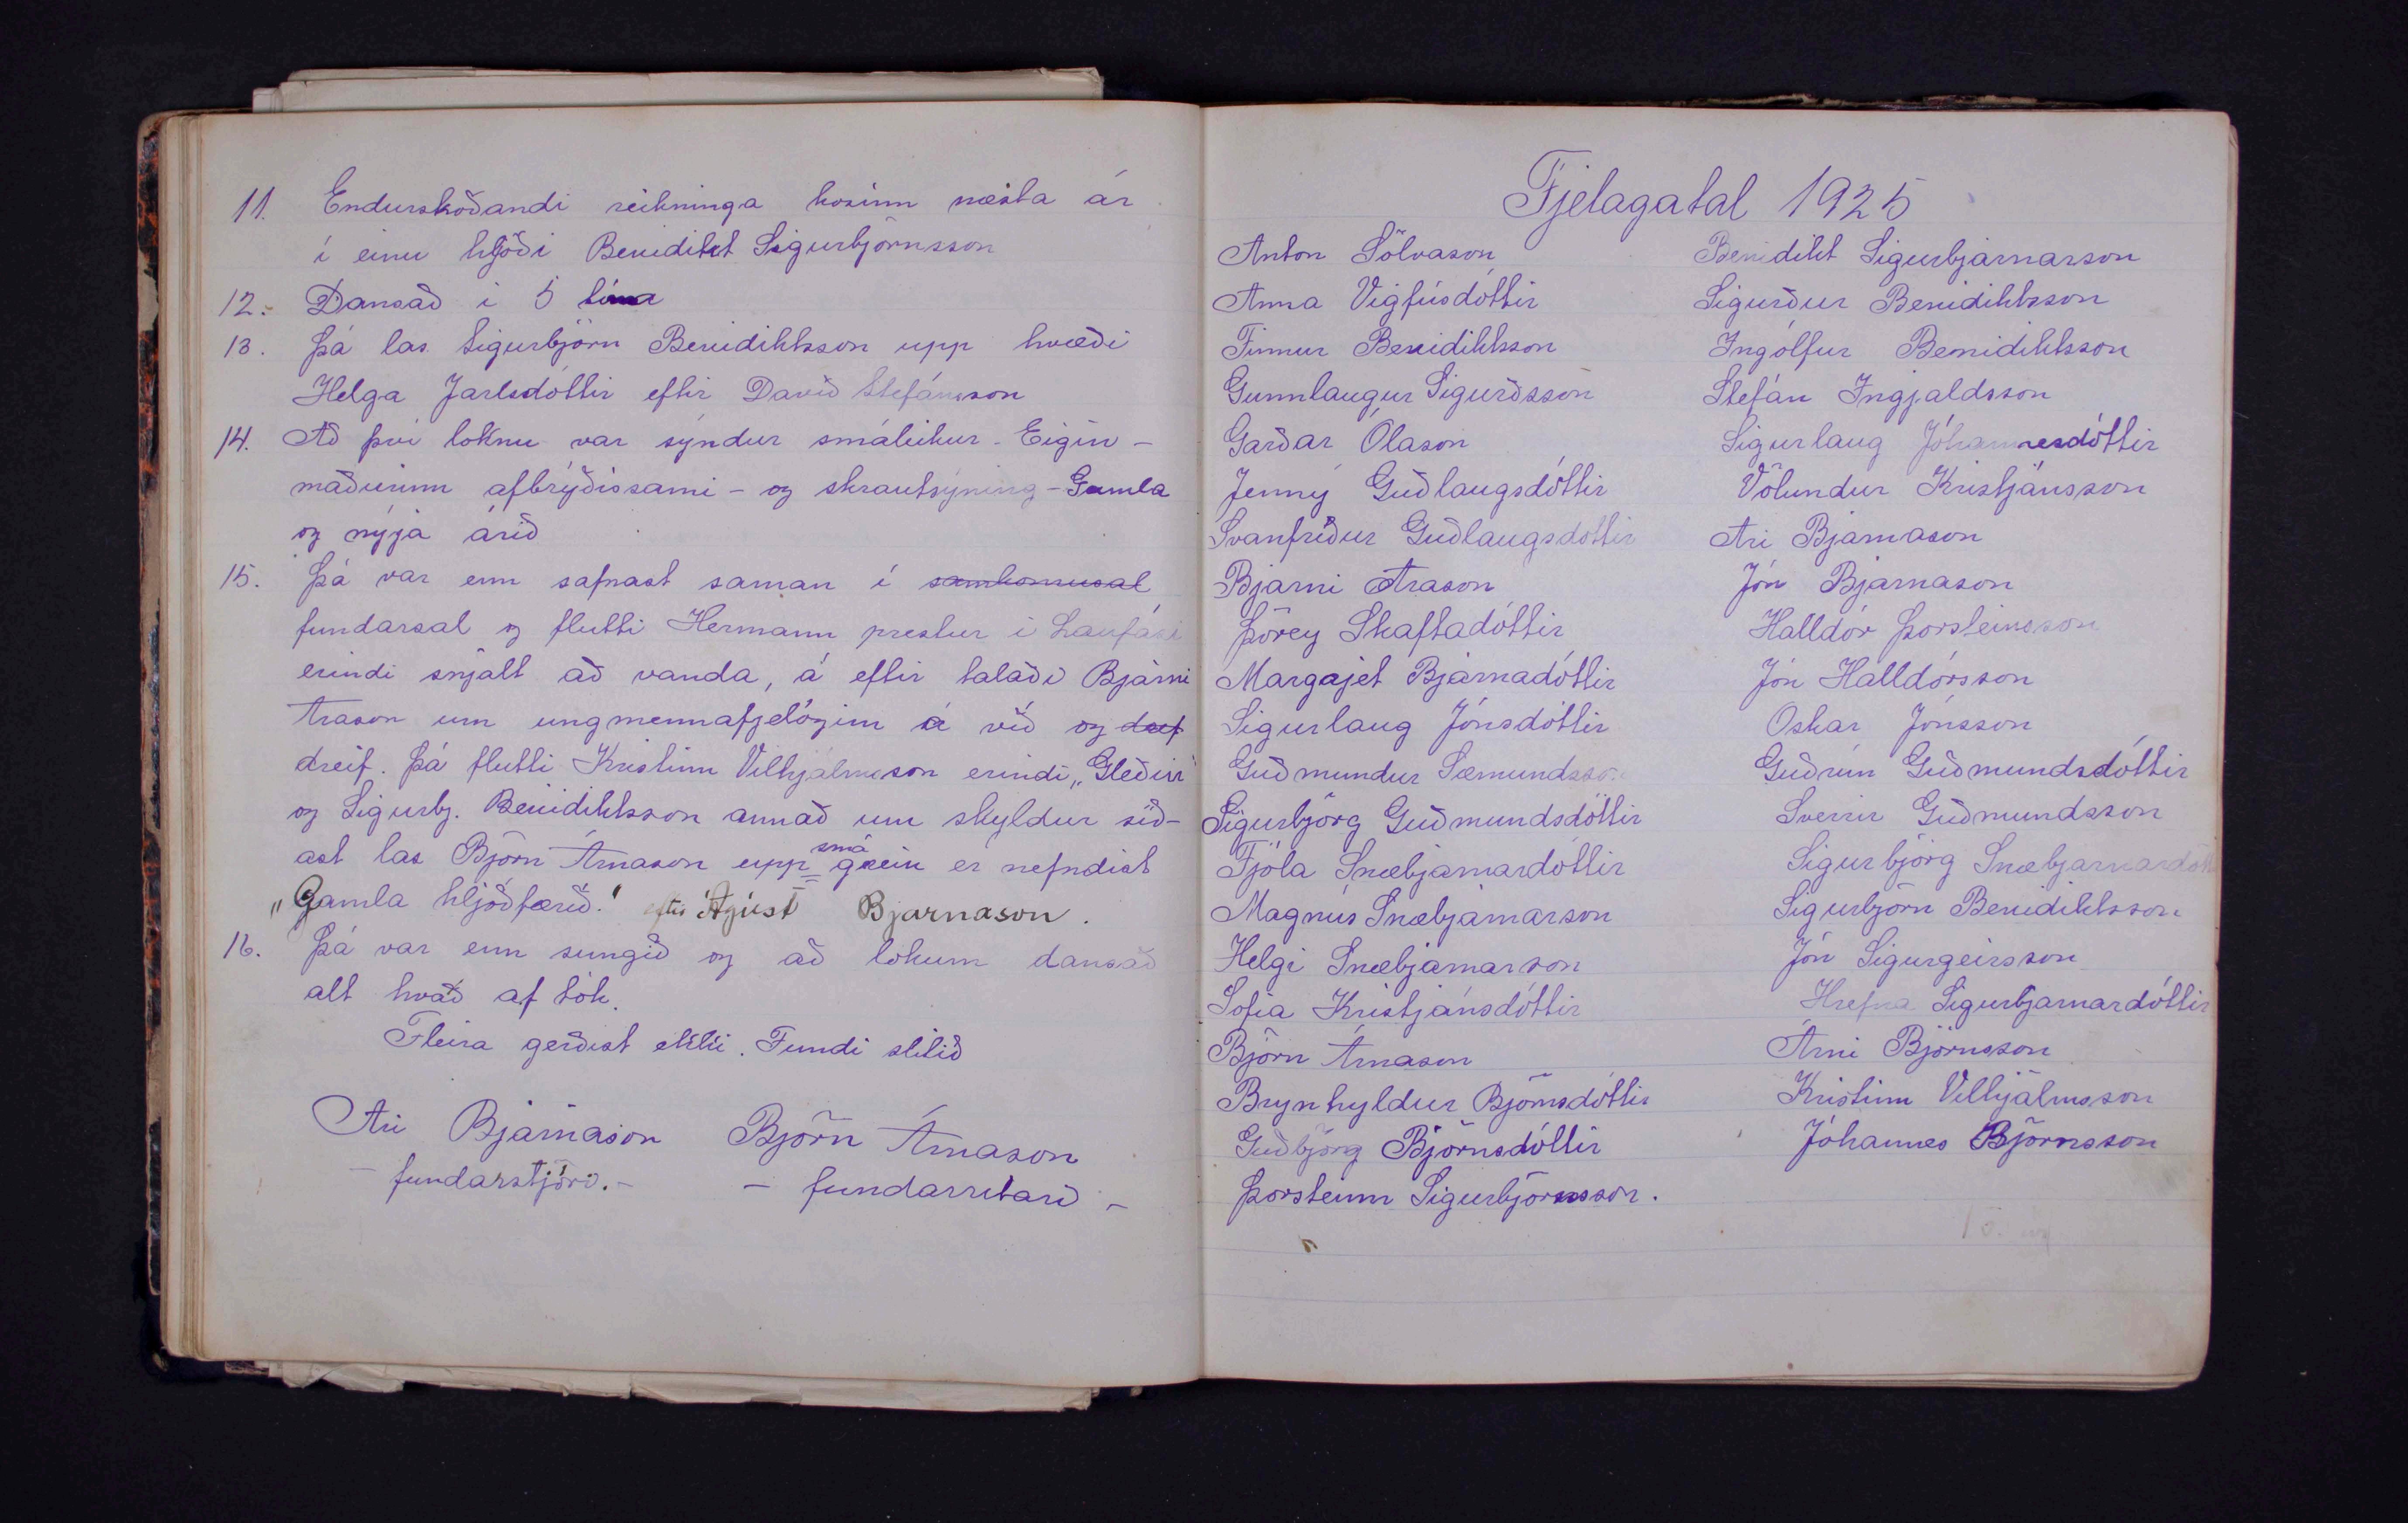 11. Endurskoðandi reikninga kosinn næsta ár
í einu hljóði Benidikt Sigurbjörnsson
12. Dansað í 5 tíma
13. Þá las Sigurbjörn Benidiktsson upp kvæði
Helga Jarlsdóttir eftir Davíð Stefánsson
14. Að því loknu var sýndur smáleikur - Eigin-
maðurinn afbrýðissami - og skrautsýning - Gamla
og nýja árið
15. Þá var enn safnast saman í samkomusal
fundarsal og flutti Hermann prestur í Laufási
erindi snjalt að vanda, á eftir talaði Bjarni
Arason um ungmennafjelögin á við og dref
dreif. Þá flutti Kristinn Vilhjálmsson erindi „Gleðin"
og Sigurbj. Benidiktsson annað um skyldur síð-
ast las Björn Árnason upp smá grein er nefndist
„Gamla hljóðfærið." eftir Ágúst Bjarnason.
16. Þá var enn sungið og að lokum dansað
alt hvað af tók.
Fleira gerðist ekki. Fundi slitið
Ari Bjarnason Björn Árnason
- fundarstjóri. - - fundarritari -
Fjelagatal 1925
Anton Sölvason
Anna Vigfúsdóttir
Finnur Benidiktsson
Gunnlaugur Sigurðsson
Garðar Ólason
Jenný Guðlaugsdóttir
Svanfríður Guðlaugsdóttir
Bjarni Arason
Þórey Skaftadóttir
Margrjet Bjarnadóttir
Sigurlaug Jónsdóttir
Guðmundur Sæmundsson
Sigurbjörg Guðmundsdóttir
Fjóla Snæbjarnardóttir
Magnús Snæbjarnarson
Helgi Snæbjarnarson
Sofia Kristjánsdóttir
Björn Árnason
Brynhyldur Björnsdóttir
Guðbjörg Björnsdóttir
Þorsteinn Sigurbjörnsson.
Benidikt Sigurbjarnarson
Sigurður Benidiktsson
Ingólfur Benidiktsson
Stefán Ingjaldsson
Sigurlaug Jóhannesdóttir
Völundur Kristjánsson
Ari Bjarnason
Jón Bjarnason
Halldór Þorsteinsson
Jón Halldórsson
Oskar Jónsson
Guðrún Guðmundsdóttir
Sverrir Guðmundsson
Sigurbjörg Snæbjarnardótt
Sigurbjörn Benidiktsson
Jón Sigurgeirsson
Hrefna Sigurbjarnardóttir
Árni Björnsson
Kristinn Vilhjálmsson
Jóhannes Björnsson